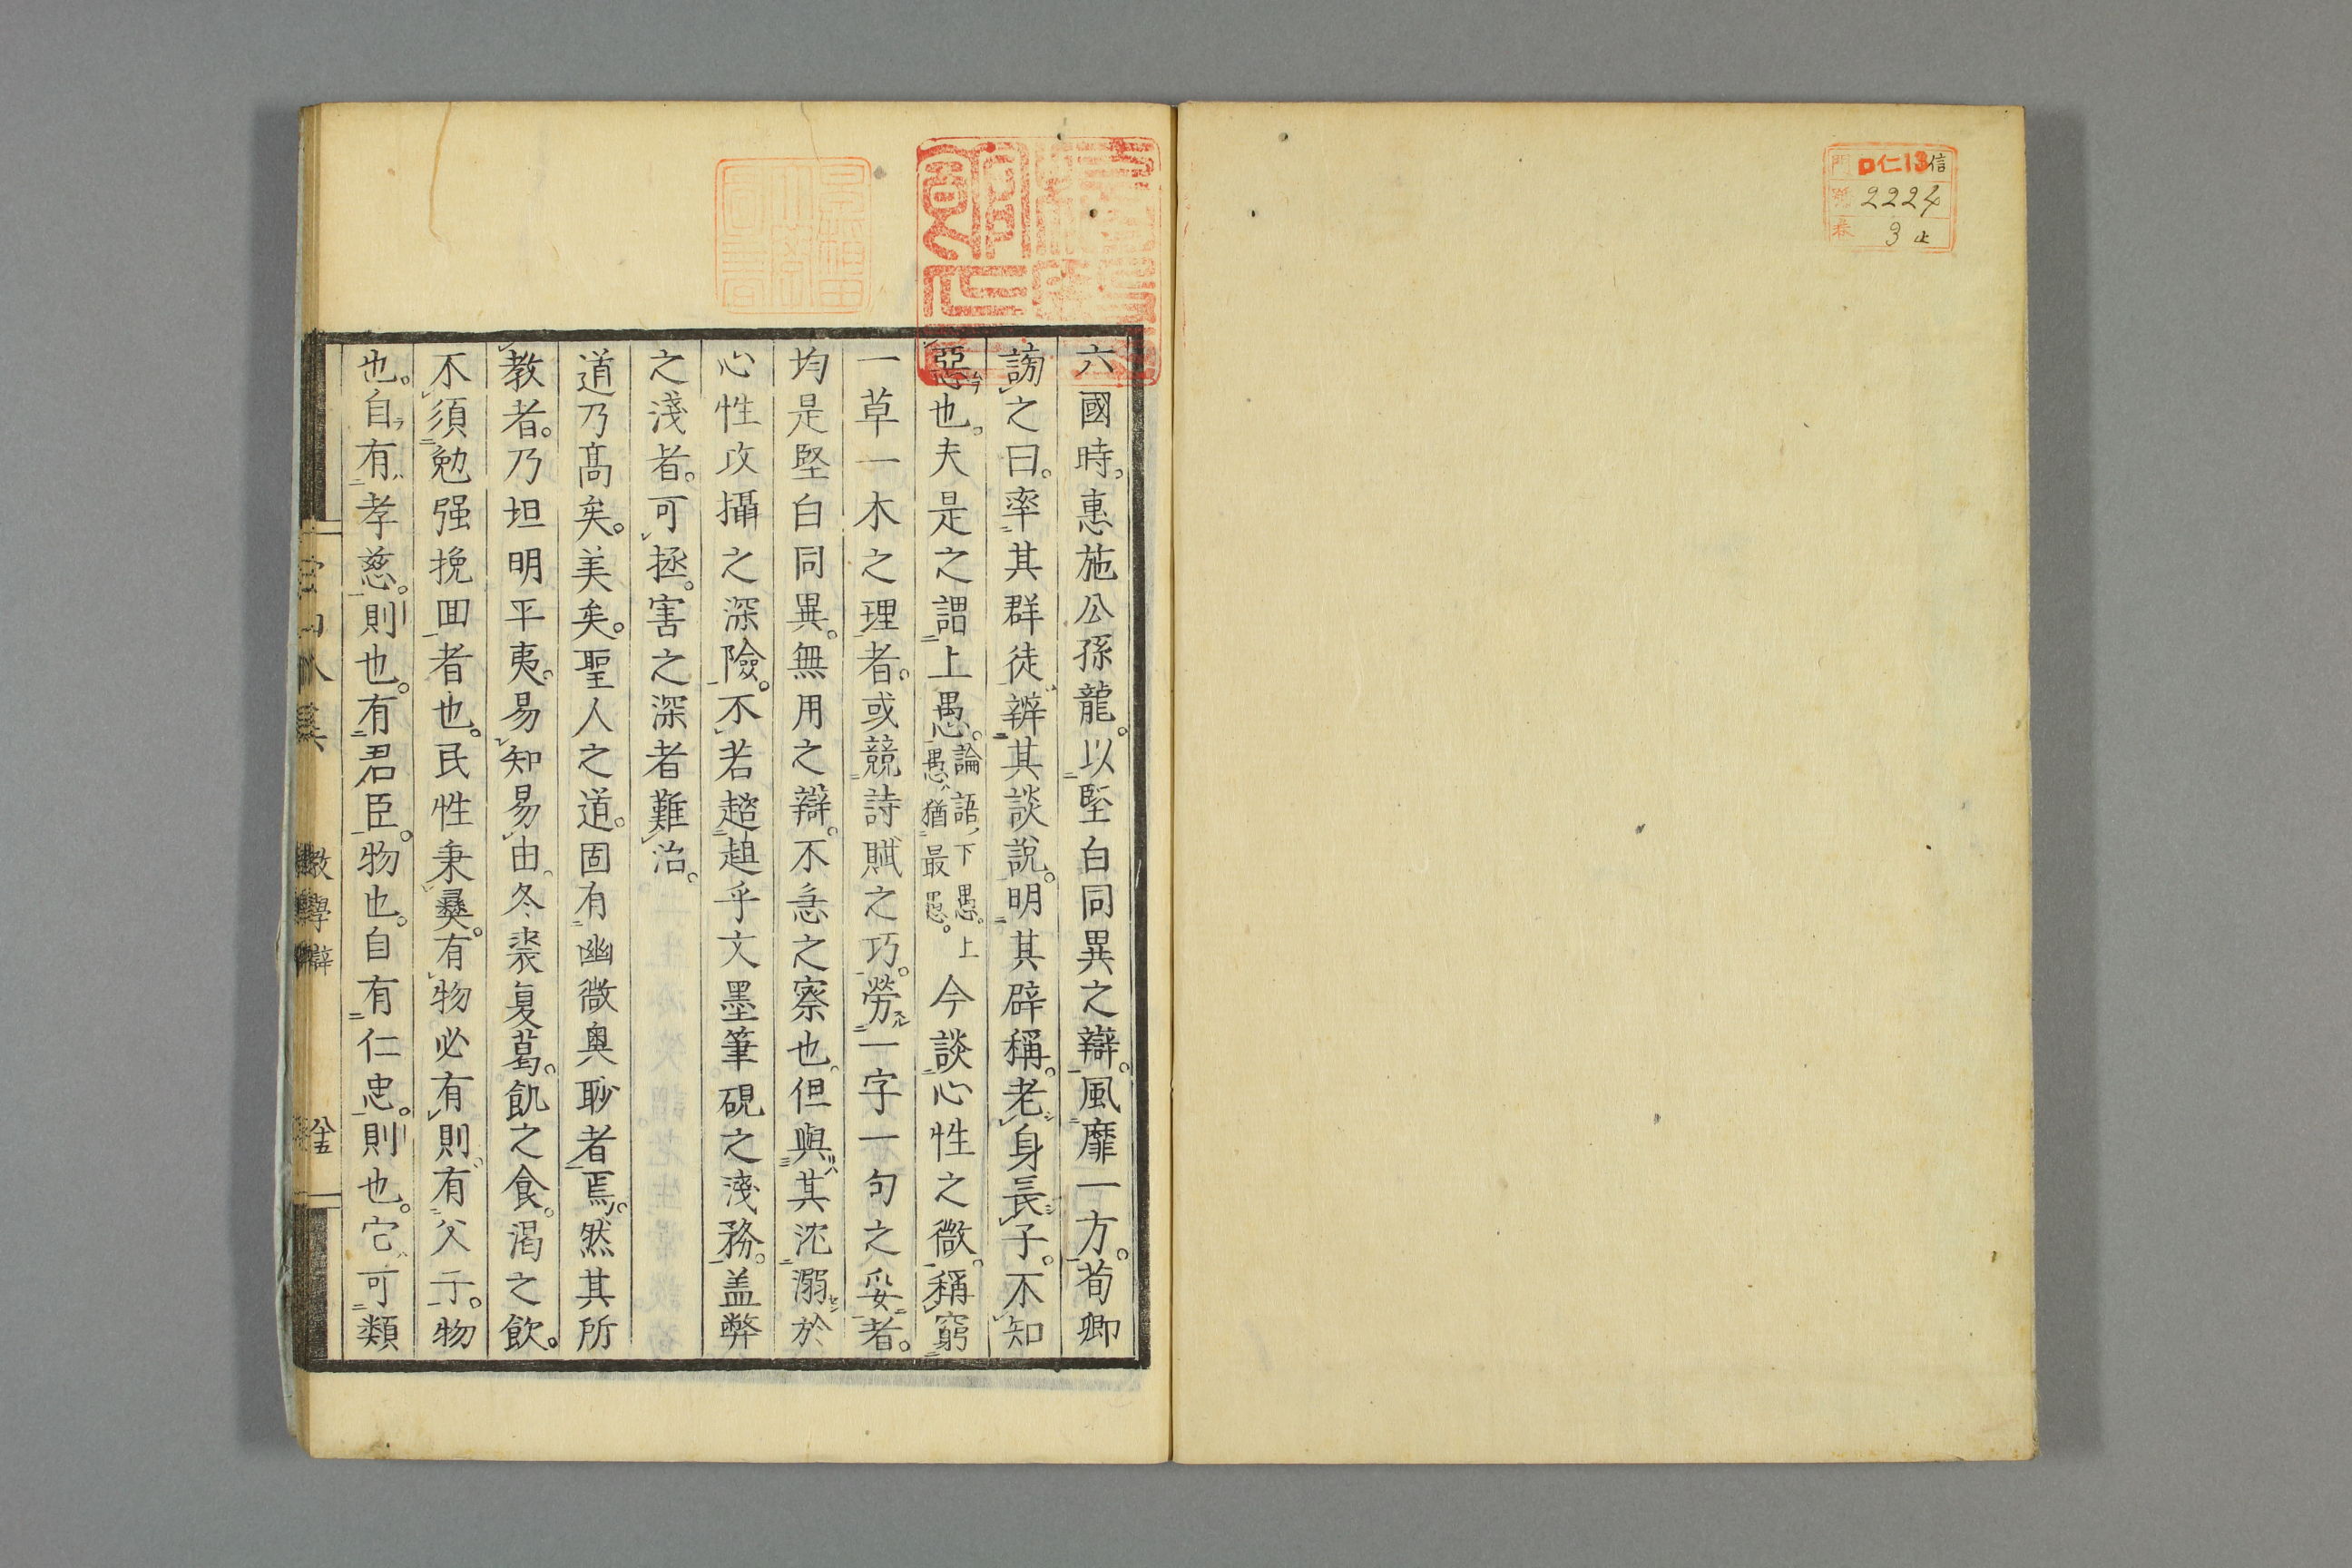 信
口仁13
門
2224
號
3止
卷
六國時。惠施公孫龍。以堅白同異之辯。風靡一方。荀卿
謗之曰。率其群徒。辨其談說。明其辟稱。老身長子。不知
惡也。夫是之謂上愚。論語、下愚。上愚、猶最愚。今談心性之微。稱窮
一草一木之理者。或競詩賦之巧。勞一字一句之妥者。
均是堅白同異。無用之辯。不急之察也。但與其沈溺於
心性攻攝之深險。不若趦趄乎文墨筆硯之淺務。盖弊
之淺者。可拯。害之深者難治。
道乃高矣。美矣。聖人之道。固有幽微奧眇者焉。然其所
教者。乃坦明平夷。易知易由。冬裘夏葛。飢之食。渴之飲。
不須勉强挽回者也。民性秉彝。有物必有則。有父子。物
也。自有孝慈。則也。有君臣。物也。自有仁忠。則也。它可類
教學辯